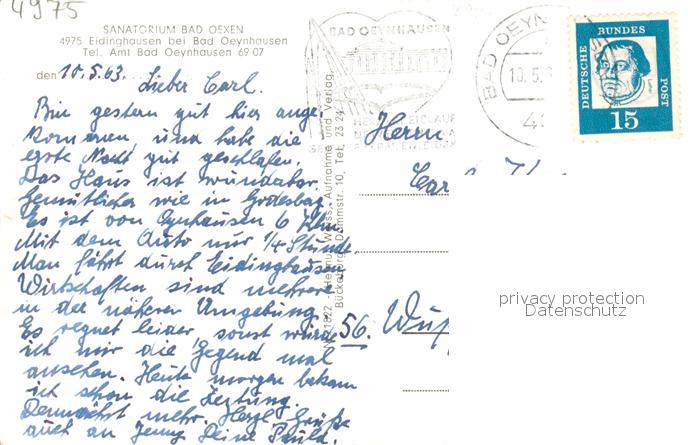 4975
SANATORIUM BAD OEXEN
4975 Eidinghausen bei Bad Oeynhausen
Tel. Amt Bad Oeynhausen 69 07
den 10.5.63. Lieber Carl.
Bin gestern gut hier ange-
kommen, und habe die
erste Nacht gut geschlafen.
Das Haus ist wunderbar.
Gemütlicher wie in Godesbag.
Es ist von Oynhausen 6 klm.
Mit dem Auto nur 1/4 Stunde.
Man fährt durch Eidinghausen
Wirtschaften sind mehrere
in der näheren Umgebung.
Es regnet leider sonst würde
ich mir die Gegend mal
ansehen. Heute morgen bekam
ich schon die Zeitung.
Demnächst mehr. Herzl Grüße
auch an Jenny Deine Paula.
BAD OEYNHAUSEN
BAD OEYN
10.5.
DEUTSCHE BUNDESPOST
15
Aufnahme und Verlag
Bückeburg, Dammstr. 10, Tel. 23 24
Herrn
Carl
56. Wup
privacy protection
Datenschutz